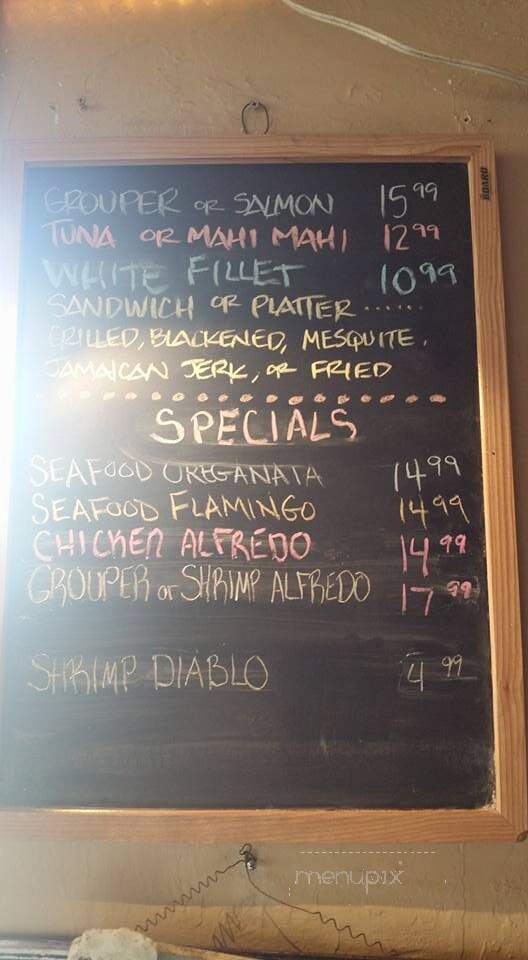 BOARD
GROUPER OR SALMON 15 99
TUNA OR MAHI MAHI 12 99
WHITE FILLET 10 99
SANDWICH OR PLATTER ......
GRILLED, BLACKENED, MESQUITE,
JAMAICAN JERK, OR FRIED
SPECIALS
SEAFOOD OREGANATA 14 99
SEAFOOD FLAMINGO 14 99
CHICKEN ALFREDO 14 99
GROUPER or SHRIMP ALFREDO 17 99
SHRIMP DIABLO 4 99
menupix